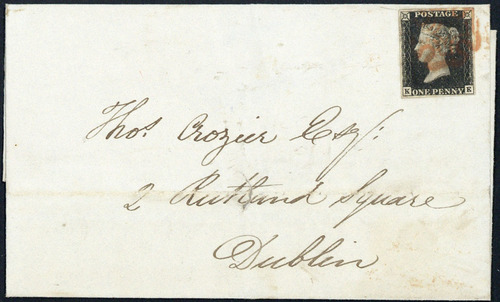 POSTAGE
K E
ONE PENNY
Thos. Crozier Esq:
2 Rutland Square
Dublin